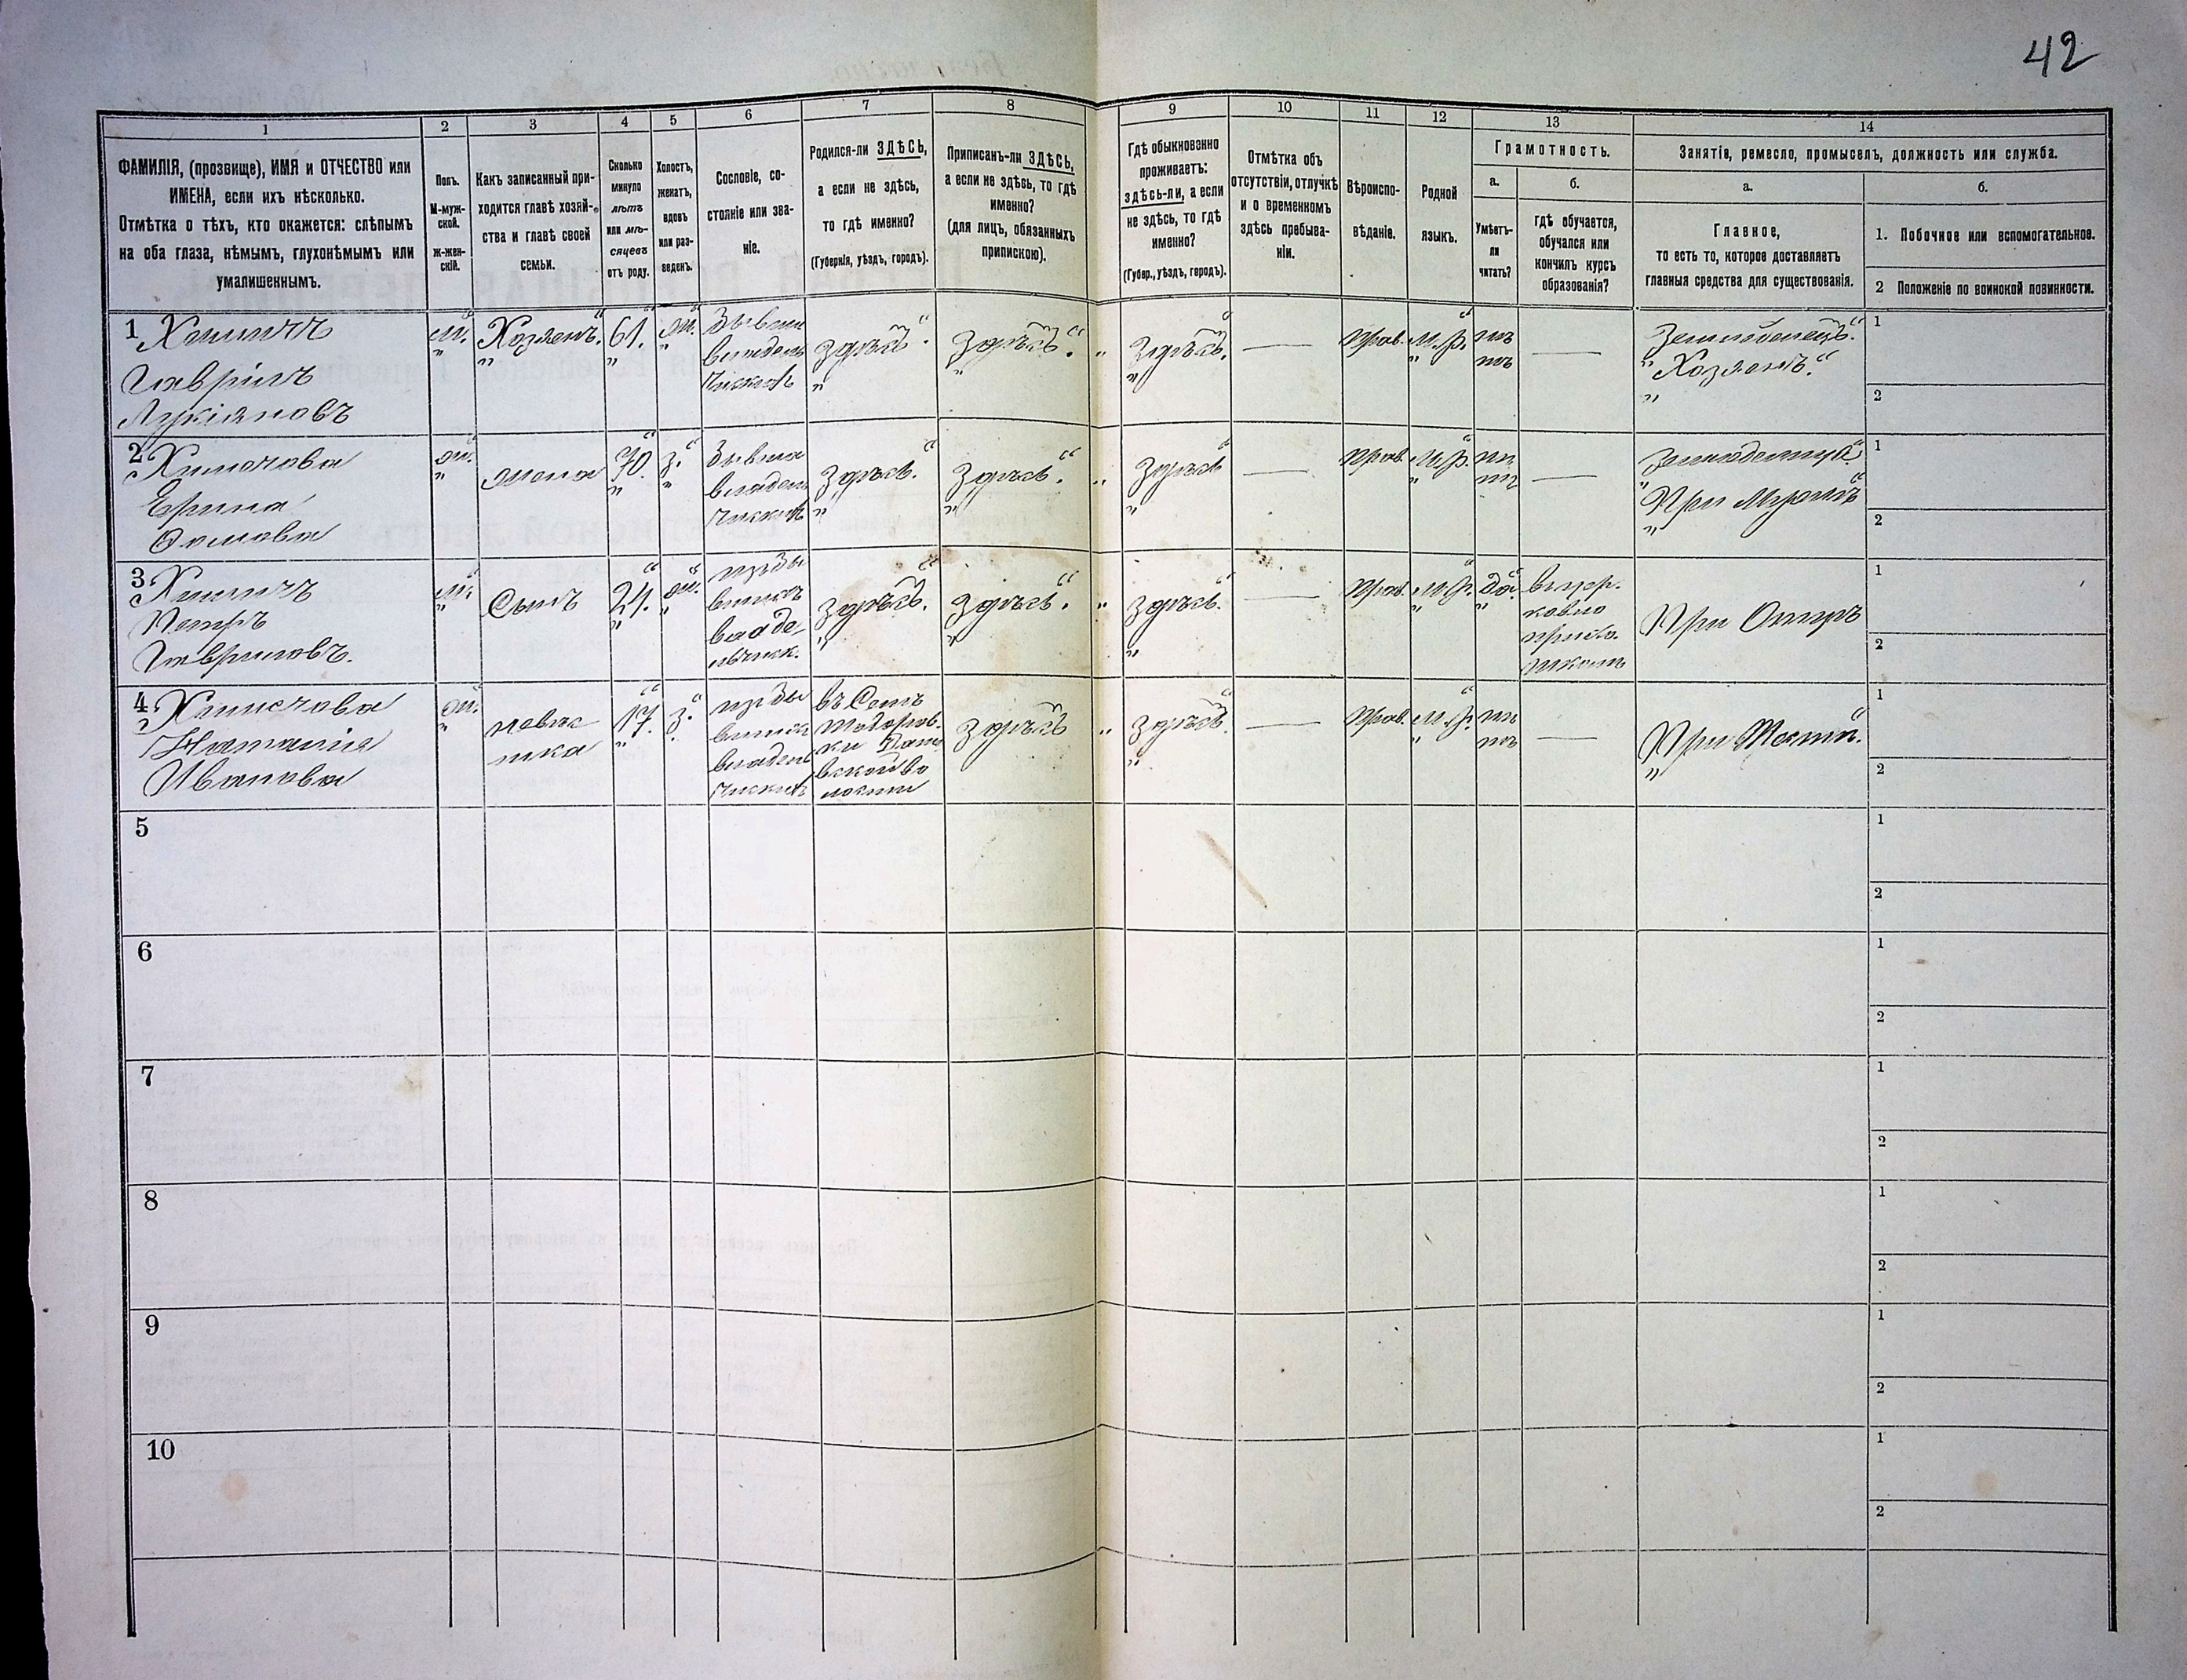 42
1 2 3 4 5 6 7 8 9 10 11 12 13 14
ФАМИЛІЯ, (прозвище), ИМЯ и ОТЧЕСТВО или
ИМЕНА, если ихъ нѣсколько.
Отмѣтка о тѣхъ, кто окажется: слѣпымъ
на оба глаза, нѣмымъ, глухонѣмымъ или
умалишеннымъ.
Полъ.
М-муж-
ской.
Ж-жен-
скій.
Какъ записанный при-
ходится главѣ хозяй-
ства и главѣ своей
семьи.
Сколько
минуло
лѣтъ
или мѣ-
сяцевъ
отъ роду.
Холостъ,
женатъ,
вдовъ
или раз-
веденъ.
Сословіе, со-
стояніе или зва-
ніе.
Родился-ли ЗДѢСЬ,
а если не здѣсь,
то гдѣ именно?
(Губернія, уѣздъ, городъ).
Приписанъ-ли ЗДѢСЬ,
а если не здѣсь, то гдѣ
именно?
(для лицъ, обязанныхъ
припискою).
Гдѣ обыкновенно
проживаетъ:
здѣсь-ли, а если
не здѣсь, то гдѣ
именно?
(Губер., уѣздъ, городъ).
Отмѣтка объ
отсутствіи, отлучкѣ
и о временномъ
здѣсь пребыва-
ніи.
Вѣроиспо-
вѣданіе.
Родной
языкъ.
Грамотность.
а.
Умѣетъ-
ли
читать?
б.
гдѣ обучается,
обучался или
кончилъ курсъ
образованія?
Занятіе, ремесло, промыселъ, должность или служба.
а.
Главное,
то есть то, которое доставляетъ
главныя средства для существованія.
б.
1. Побочное или вспомогательное.
2 Положеніе по воинской повинности.
1
Гаврілъ
Лукіяновъ
м.
Хозяенъ.
61.
ж.
здѣсь.
здѣсь.
Здѣсь.
—
Прав.
М.р.
нѣ
тъ
—
Земледелецъ.
Хозяенъ.
1
2
2
ж.
жена
70.
з.
здѣсь.
здѣсь.
здѣсь
—
Прав.
М.р.
—
При Мужѣ
1
2
3
Петръ
Гавриловъ.
м.
Сынъ
24.
ж.
здѣсь.
здѣсь.
здѣсь.
—
Прав.
М.р.
да
в церр.
ковно
прихо.
школѣ
При Отцѣ
1
2
4
Наталія
Иванова
ж.
невѣс
тка
17.
з.
въ Селѣ
вской во
лости
здѣсь
здѣсь.
—
Прав.
М.р.
нѣ
тъ
—
1
2
5
1
2
6
1
2
7
1
2
8
1
2
9
1
2
10
1
2